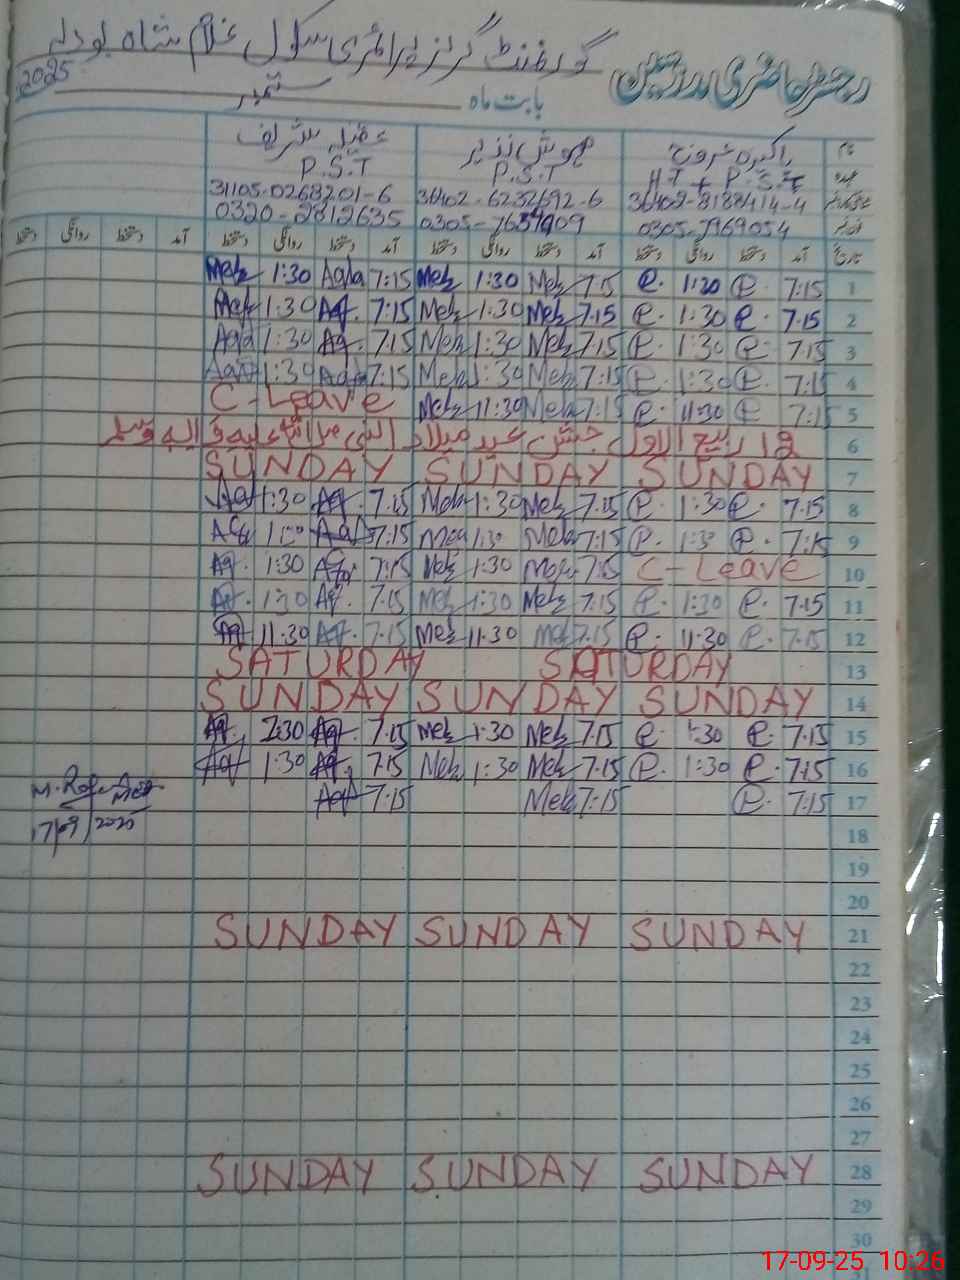 رجسٹر حاضری مدرسین گورنمنٹ گرلز پرائمری سکول غلام شاہ بودلہ
بابت ماہ ستمبر 2025
نام پاکیزہ مہوش نذیر شریف
عہدہ H T + P.S.T P.S.T P.S.T
36402-8188414-4 36402-6232692-6 31105-0268201-6
0305-7969054 0305- 0320-2812635
تاریخ آمد دستخط روانگی دستخط آمد دستخط روانگی دستخط آمد دستخط روانگی دستخط آمد دستخط روانگی دستخط
1 7:15 P. 1:30 P. 7:15 Meh 1:30 Meh 7:15 Aqla 1:30 Meh
2 7:15 P. 1:30 P. 7:15 Meh 1:30 Meh 7:15 Aq. 1:30 Aq
3 7:15 P. 1:30 P. 7:15 Meh 1:30 Meh 7:15 Aq. 1:30 Aqla
4 7:15 P. 1:30 P. 7:15 Meh 1:30 Meh 7:15 1:30
5 7:15 P. 11:30 P. 7:15 Meh 11:30 Meh C-Leave
6 12 ربیع الاول جشن عید میلاد النبی صلی اللہ علیہ و آلہ وسلم
7 SUNDAY SUNDAY SUNDAY
8 7:15 P. 1:30 P. 7:15 Meh 1:30 Meh 7:15 Aq. 1:30 Aq
9 7:15 P. 1:30 P. 7:15 Meh 1:30 Meh 7:15
10 C-Leave 7:15 Meh 1:30 Meh 7:15 1:30 Aq.
11 7:15 P. 1:30 P. 7:15 Meh 1:30 Meh 7:15 Aq. 1:30 Aq.
12 7:15 P. 11:30 P. 7:15 Meh 11:30 Meh 7:15 Aq. 11:30 Aq
13 SATURDAY SATURDAY
14 SUNDAY SUNDAY SUNDAY
15 7:15 P. 1:30 P. 7:15 Meh 1:30 Meh 7:15 Aq. Aq.
16 7:15 P. 1:30 P. 7:15 Meh 1:30 Meh 7:15 Aq. 1:30 Aq
17 7:15 P. 7:15 Meh 7:15 Aq
17/09/2025
18
19
20
21 SUNDAY SUNDAY SUNDAY
22
23
24
25
26
27
28 SUNDAY SUNDAY SUNDAY
29
30
17-09-25 10:26